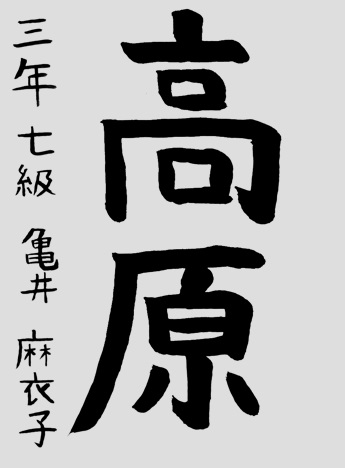 高原
三年 七級 亀井 麻衣子